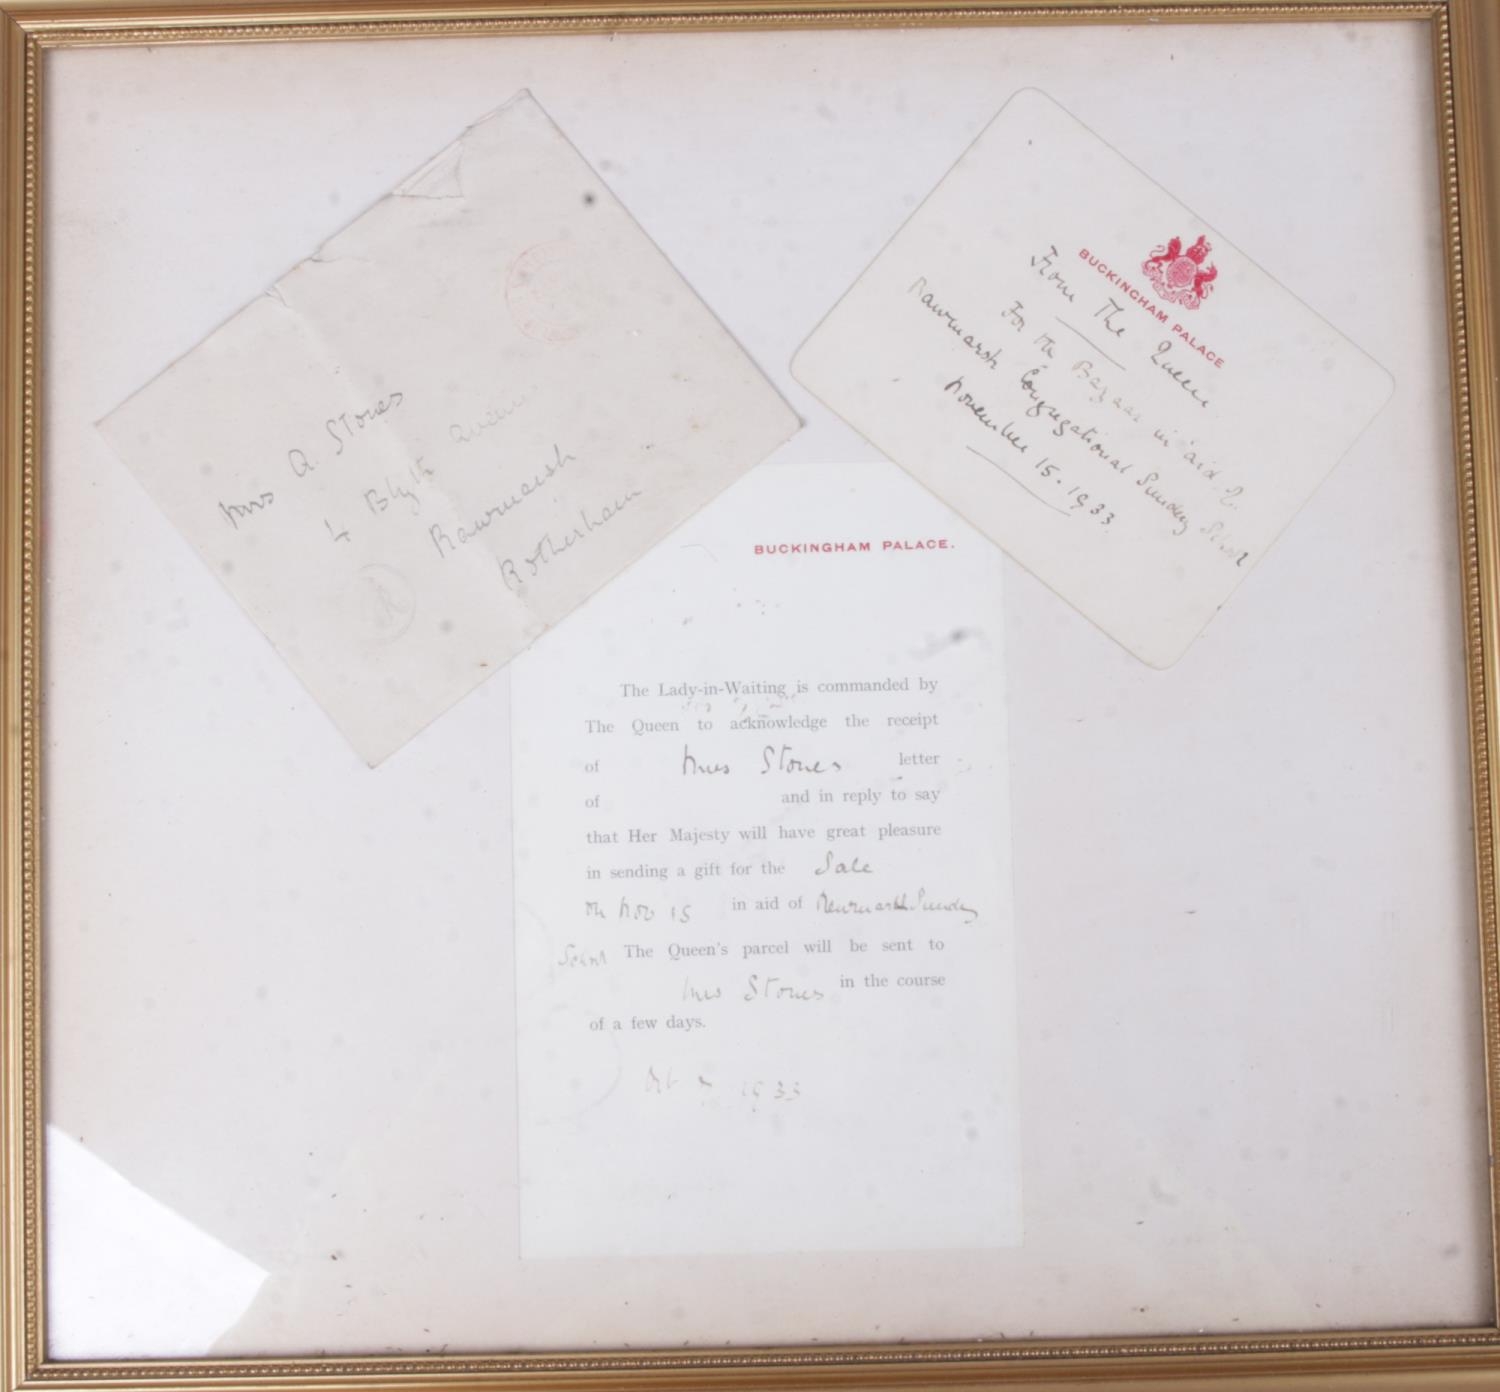 Mrs A. Stones
4 Blyth Avenue
Rawmarsh
Rotherham
BUCKINGHAM PALACE
From The Queen
For the Bazaar in aid of
Rawmarsh Congregational Sunday School
November 15. 1933.
BUCKINGHAM PALACE.
The Lady-in-Waiting is commanded by
The Queen to acknowledge the receipt
of Mrs Stones letter
of and in reply to say
that Her Majesty will have great pleasure
in sending a gift for the Sale
on Nov 15 in aid of Rawmarsh Sunday
School The Queen's parcel will be sent to
Mrs Stones in the course
of a few days.
Oct 1933